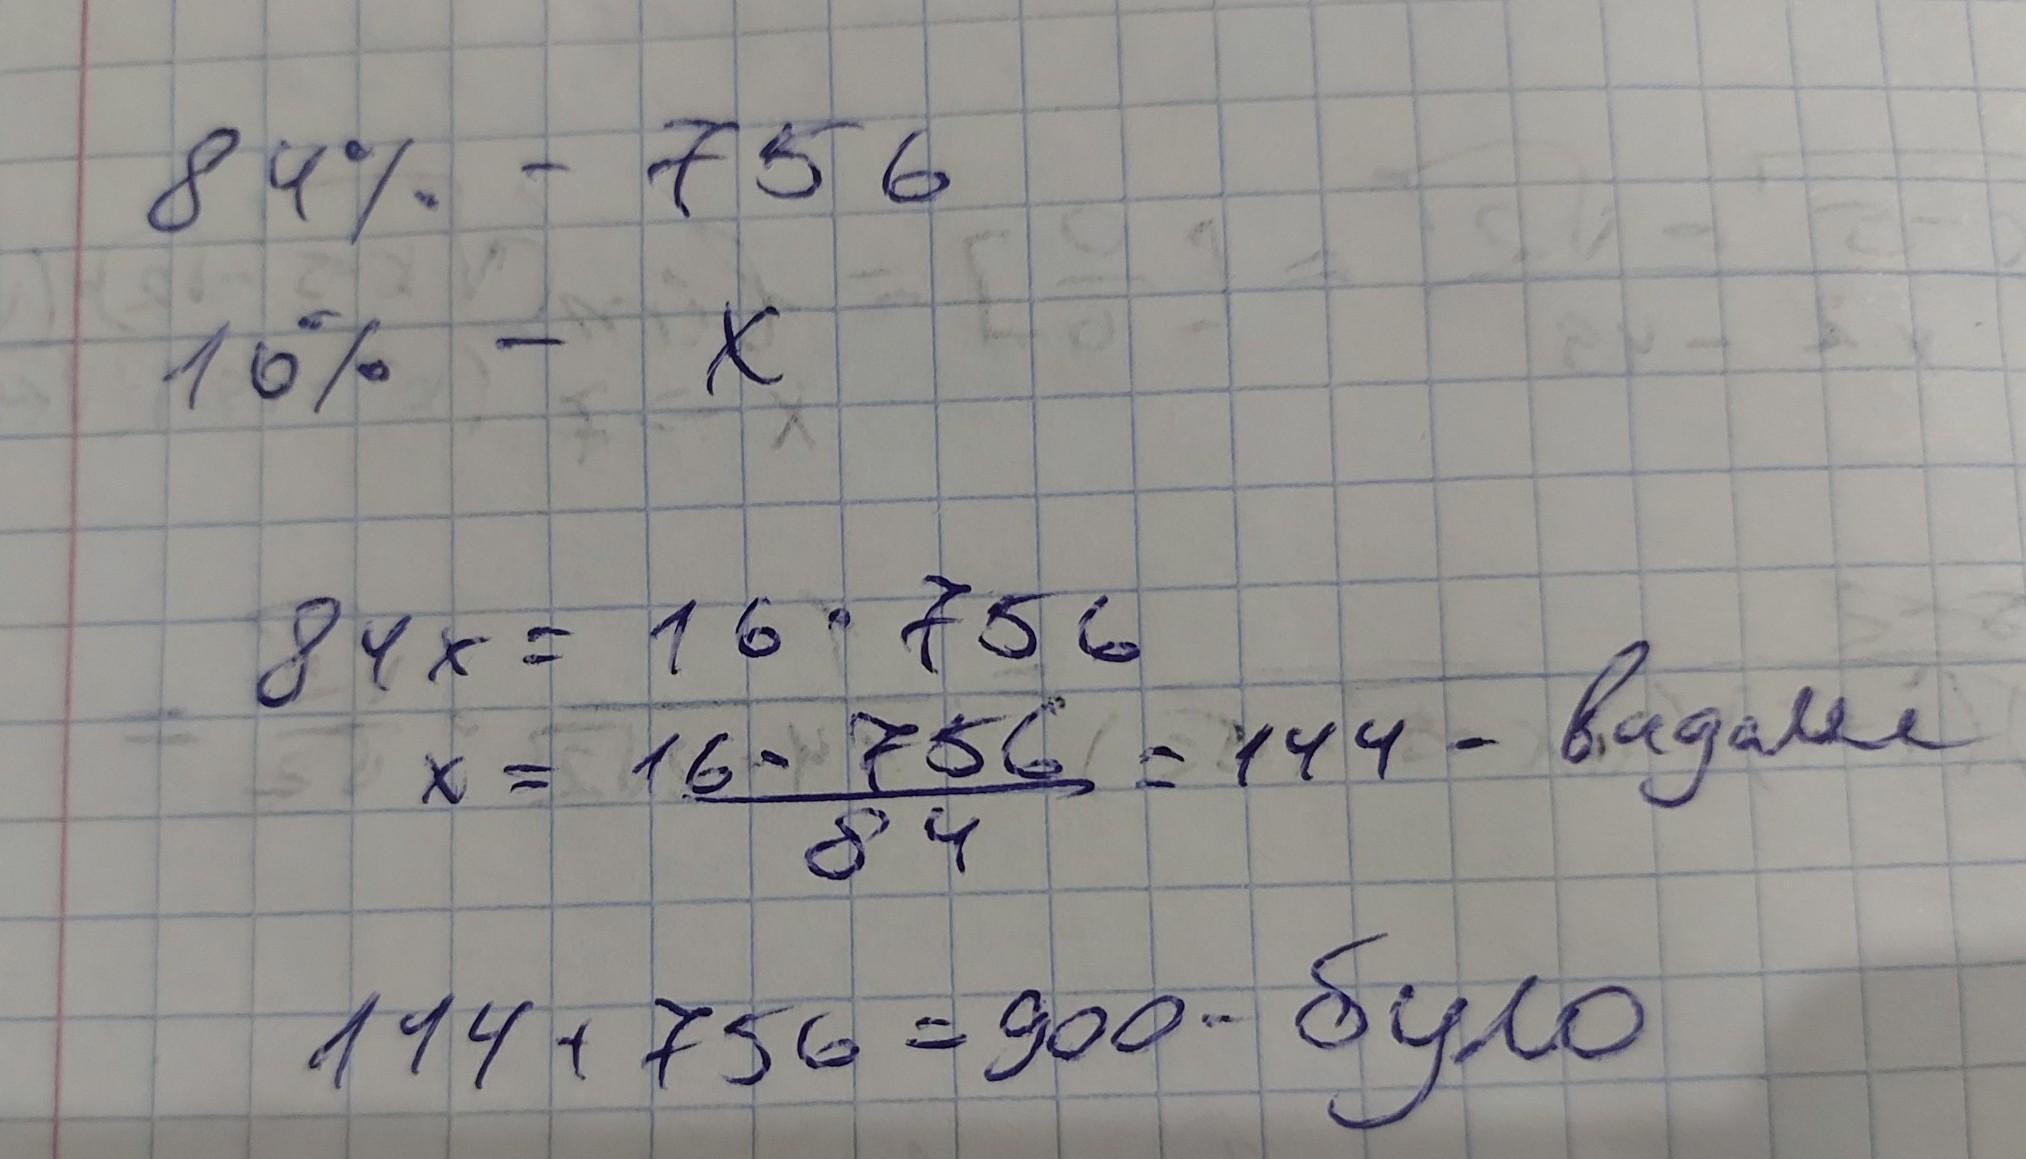 84% - 756
16% - x
84x = 16 · 756
x = 16 · 756 / 84 = 144 - видалили
144 + 756 = 900 - було